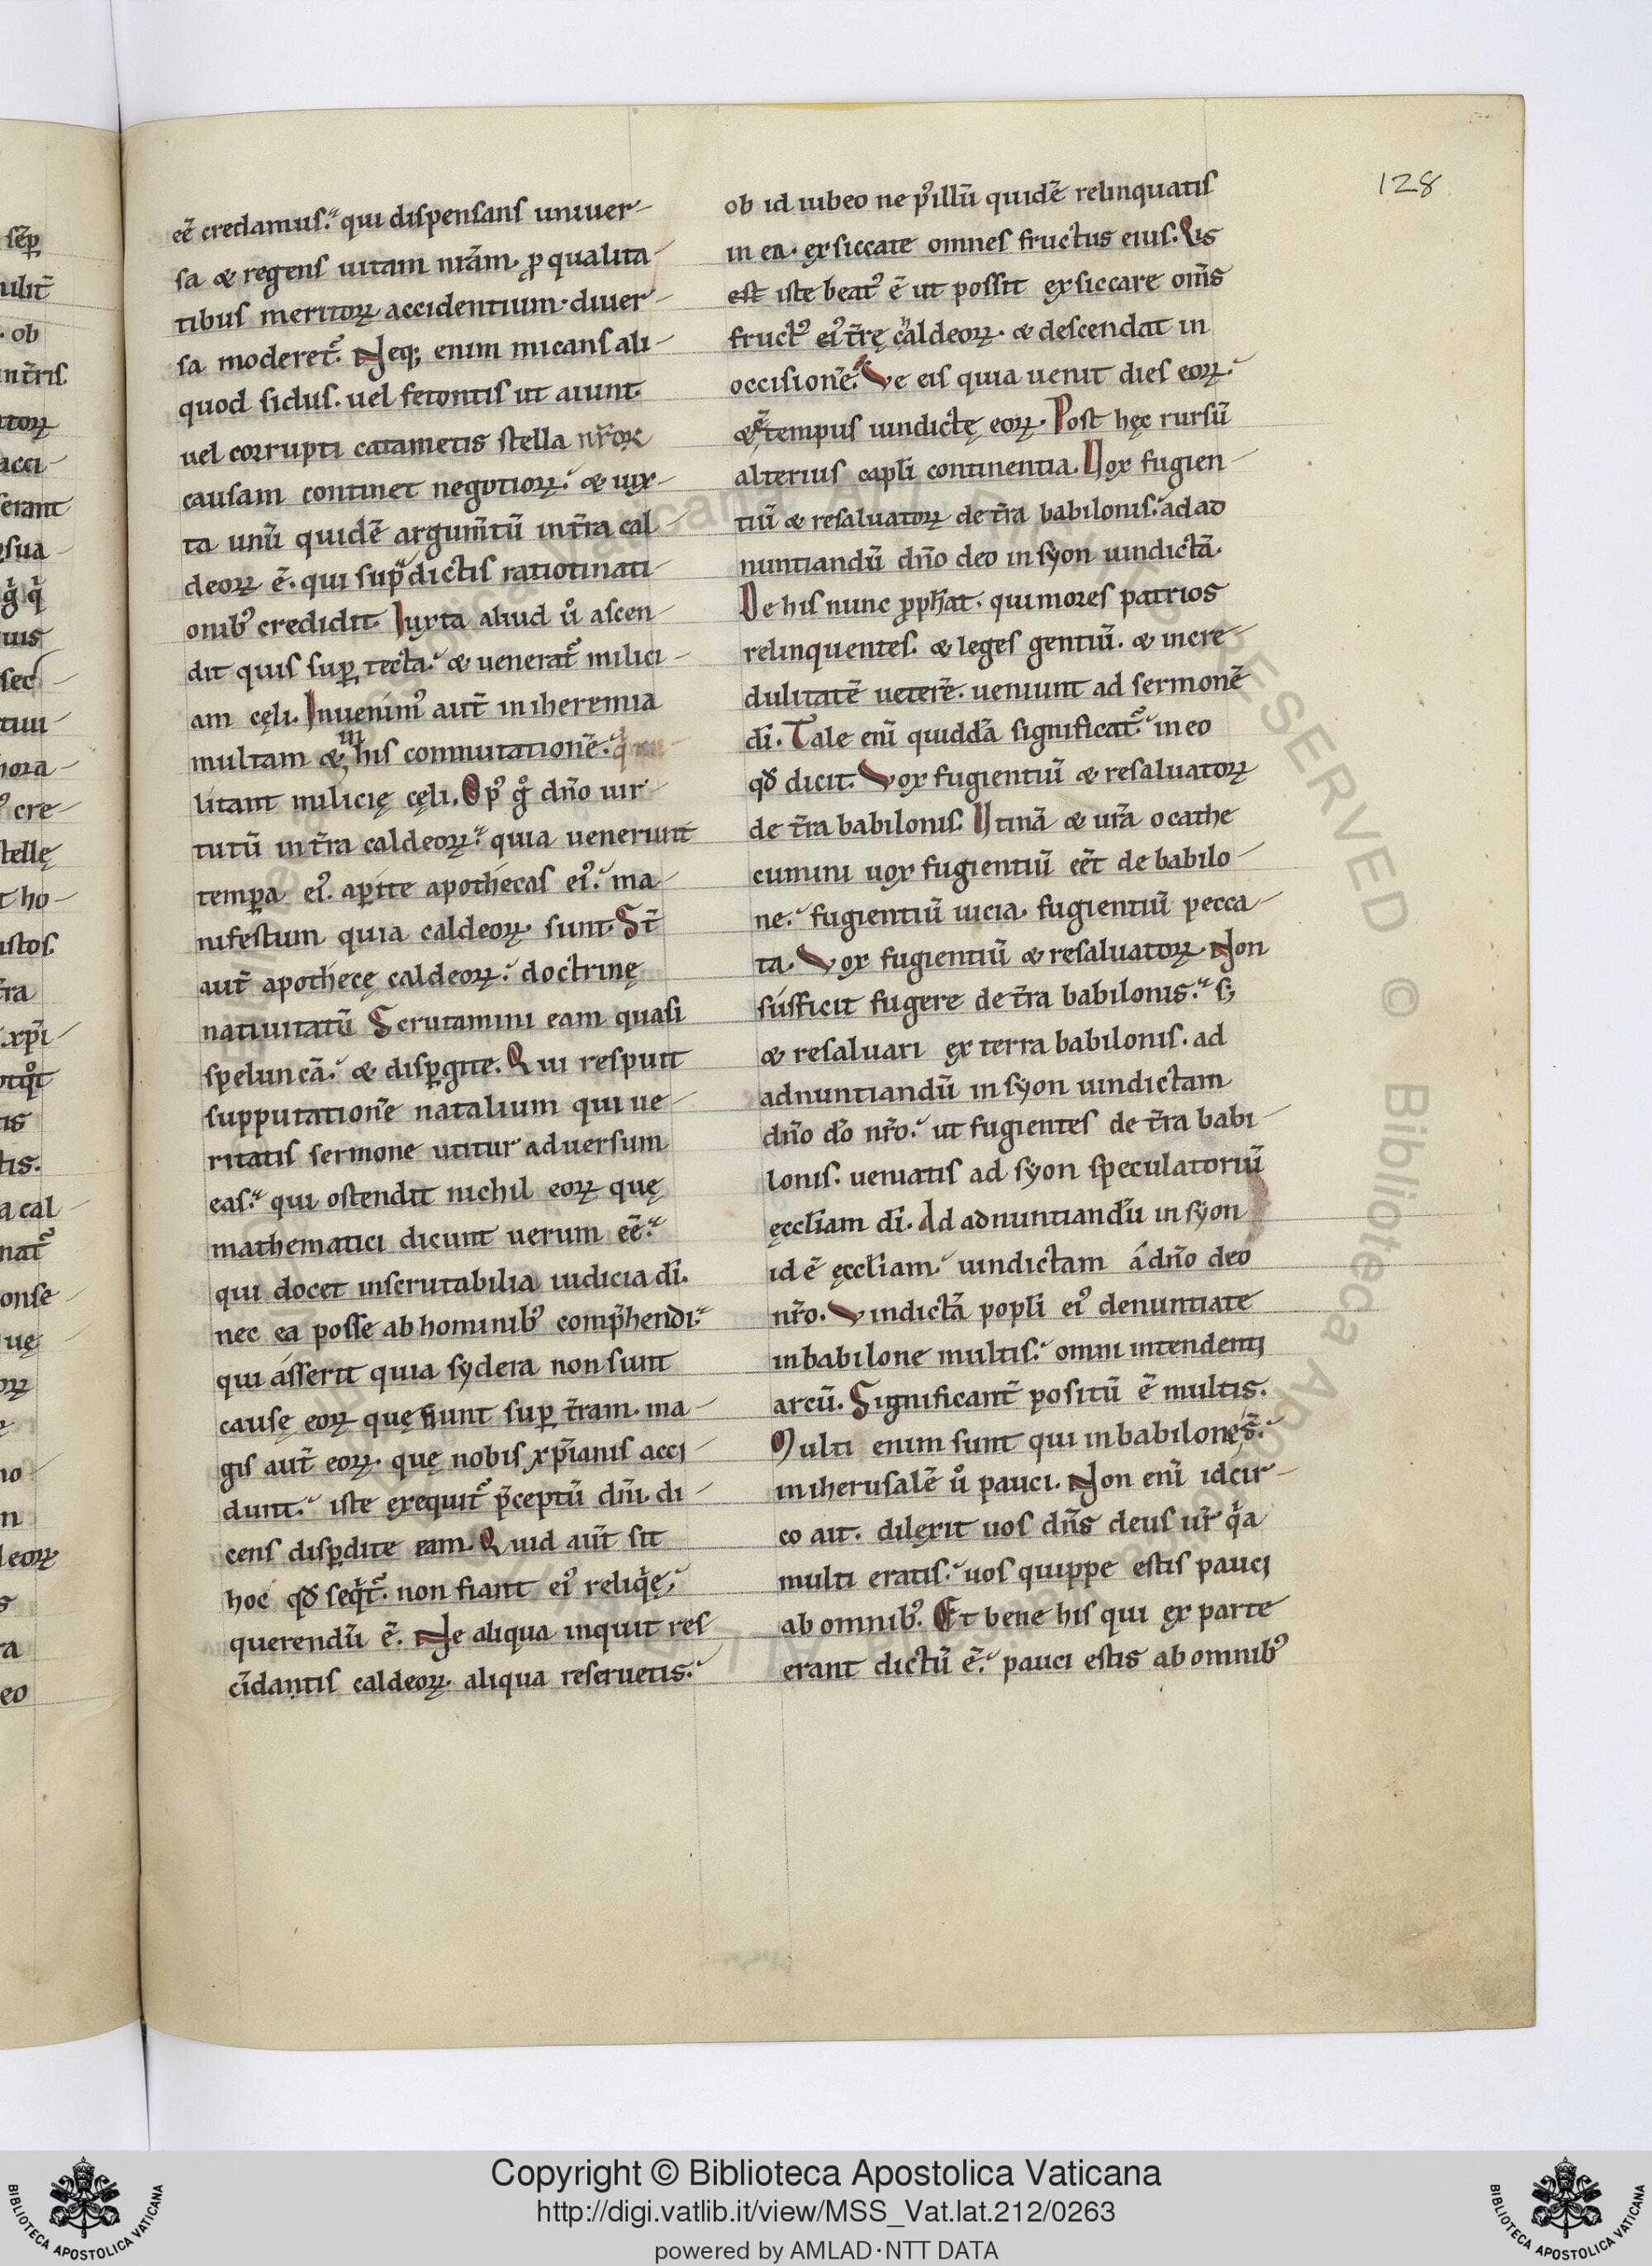 128
eē credamus. qui dispensans uniuer-
sa & regens uitam nr̄am. ꝓ qualita-
tibus meritoꝝ accidentium. diuer-
sa moderet᷒. Neq; enim micans ali-
quod sidus. uel fetontis ut aiunt.
uel corrupti catametis stella nr̄oꝝ
causam continet negotioꝝ. & iux-
ta unū quidē argum̄tū in t̄ra cal-
deoꝝ ē. qui sup͛dictis ratiotinati-
onibꝰ credidit. Iuxta aliud ů ascen-
dit quis suꝑ tecta. & uenerat᷒ milici-
am cęli. Inuenimꝰ aut̄ in iheremia
multam & in his conmutationē.
litant milicię cęli. Opꝰ g̊ dn̄o uir-
tutū in t̄ra caldeoꝝ. quia uenerunt
temꝑa eiꝰ. aꝑite apothecas eiꝰ. ma-
nifestum quia caldeoꝝ sunt. St̄
aut̄ apothecę caldeoꝝ. doctrinę
natiuitatū Scrutamini eam quasi
speluncā. & disꝑgite. Qui respuit
supputationē natalium qui ue-
ritatis sermone utitur aduersum
eas. qui ostendit nichil eoꝝ quę
mathematici dicunt uerum eē.
qui docet inscrutabilia iudicia dī.
nec ea posse ab hominibꝰ comp̄hendi.
qui asserit quia sydera non sunt
causę eoꝝ quę hunt suꝑ t̄ram. ma-
gis aut̄ eoꝝ. quę nobis xp̄ianis acci-
dunt. iste exequit᷒ p̄ceptū dn̄i. di-
cens disꝑdite eam. Quid aut̄ sit
hoc qđ seqͥt᷒. non fiant eiꝰ reliqͥę,
querendū ē. Ne aliqua inquit res
cīdantis caldeoꝝ. aliqua reseruetis.
ob id iubeo ne pꝰillū quidē relinquatis
in ea. exsiccate omnes fructus eius. Qis
est iste beatꝰ ē ut possit exsiccare om̄s
fructꝰ eiꝰ t̄rę caldeoꝝ. & descendat in
occisionē. Ve eis quia uenit dies eoꝝ.
& tempus uindictę eoꝝ. Post hęc rursū
alterius capl̄i continentia. Uox fugien-
tiū & resaluatoꝝ de t̄ra babilonis. ad ad
nuntiandū dn̄o deo in syon uindictā.
De his nunc ꝓph̄at. qui mores patrios
relinquentes. & leges gentiū. & incre-
dulitatē ueterē. ueniunt ad sermonē
dī. Tale enī quiddā significat᷒. in eo
qđ dicit. Vox fugientiū & resaluatoꝝ
de t̄ra babilonis. Utinā & ur̄a o cathe
cumini uox fugientiū eēt de babilo-
ne. fugientiū uicia. fugientiū pecca-
ta. Vox fugientiū & resaluatoꝝ Non
sufficit fugere de t̄ra babilonis. s;
& resaluari ex terra babilonis. ad
adnuntiandū in syon uindictam
dn̄o dō nr̄o. ut fugientes de t̄ra babi-
lonis. ueniatis ad syon speculatoriū
ęccl̄iam dī. Ad adnuntiandū in syon
id ē ęccl̄iam. uindictam á dn̄o deo
nr̄o. Vindictā popl̄i eiꝰ denuntiate
in babilone multis. omni intendenti
arcū. Significant̄ positū ē multis.
Multi enim sunt qui in babilone s̄.
in iherusalē ů pauci. Non enī idcir-
co ait. dilexit uos dn̄s deus ur̄ qͥa
multi eratis. uos quippe estis pauci
ab omnibꝰ. Et bene his qui ex parte
erant dictū ē. pauci estis ab omnibꝰ
Copyright © Biblioteca Apostolica Vaticana
http://digi.vatlib.it/view/MSS_Vat.lat.212/0263
powered by AMLAD·NTT DATA
BIBLIOTECA APOSTOLICA VATICANA
BIBLIOTECA APOSTOLICA VATICANA